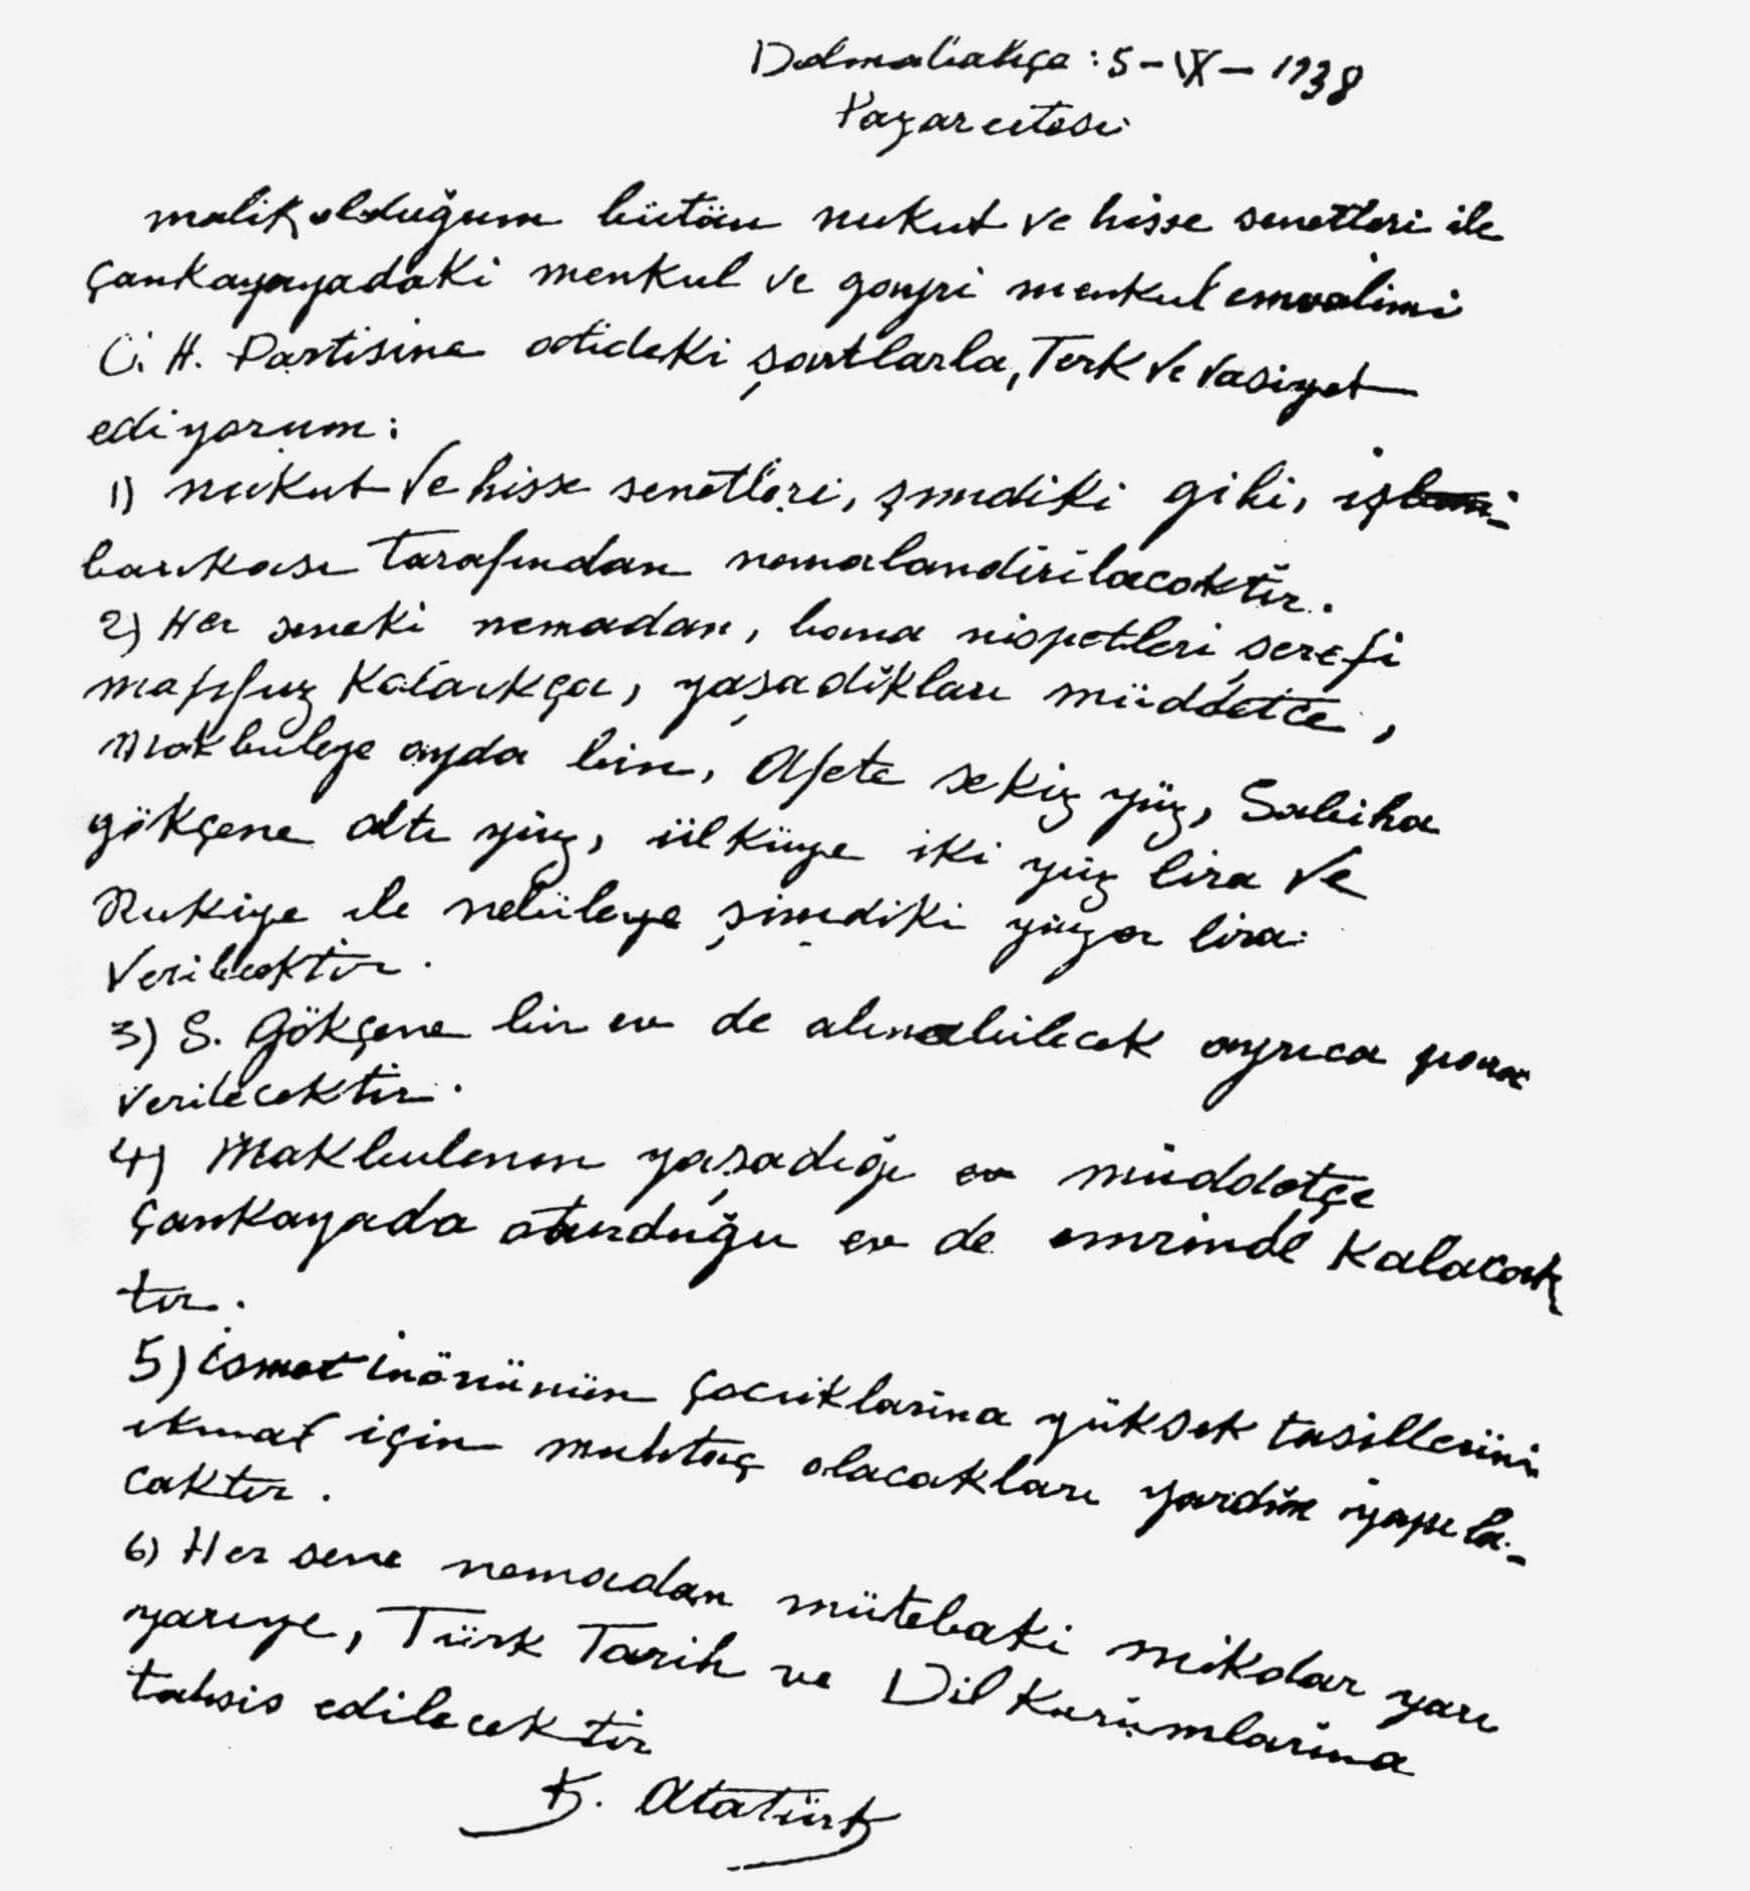 Dolmabahçe : 5 - IX - 1938
Pazarertesi
malik olduğum bütün nukut ve hisse senetleri ile
Çankayayadaki menkul ve gayri menkul emvalimi
C. H. Partisine atideki şartlarla, Terk ve vasiyet
ediyorum :
1) nukut ve hisse senetleri, şimdiki gibi, iş
bankası tarafından nemalandırılacaktır.
2) Her seneki nemadan, bana nispetleri şerefi
mahfuz kaldıkça, yaşadıkları müddetce,
Makbuleye ayda bin, Afete sekiz yüz, Sabiha
gökçene altı yüz, ülküye iki yüz lira ve
Rukiye ile nebileye şimdiki yüzer lira
verilecektir.
3) S. Gökçene bir ev de alınabilecek ayrıca para
verilecektir.
4) Makbulenin yaşadığı müddetçe
Çankayada oturduğu ev de emrinde kalacak
tır.
5) ismet inönünün çocuklarına yüksek tasillerini
ikmal için muhtaç olacakları yardım yapıla-
caktır.
6) Her sene nemadan mütebaki mikdar yarı
yarıya, Türk Tarih ve Dil Kurumlarına
tahsis edilecektir
K. Atatürk